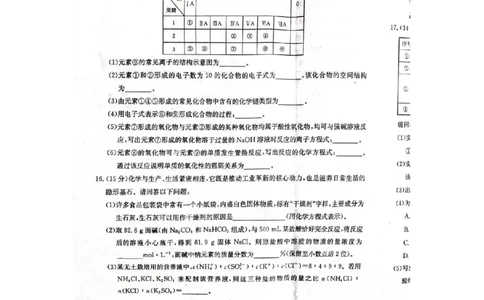 周期 ⅠA 0
1 ① ⅡA ⅢA ⅣA ⅤA ⅥA ⅦA
2 ② ③ ④
3 ⑤
17.(1
元素 的常见离子的结构示意图为______。
(2)元素①和②形成的电子数为 10 的化合物的电子式为______,该化合物的空间结构
为______。
(3)由元素①④⑤形成的常见化合物中含有的化学键类型为______。
(4)用电子式表示 形成化合物的过程:______。
(5)元素⑦形成的氧化物与元素②形成的某种氧化物均属于酸性氧化物,均可与强碱溶液反
应,写出元素⑦形成的氧化物溶于过量的 NaOH 溶液时反应的离子方程式:______。
(6)元素 的氢化物可与元素 的单质发生置换反应,写出反应的化学方程式:______,
通过该反应说明单质的氧化性的强弱关系为______。
16.(15 分)化学与生产、生活紧密相连,它既是推动工业革新的核心动力,也是滋养日常生活的
隐形基石。请回答以下问题:
(1)许多食品包装袋中常有一个小纸袋,内盛白色固体物质,标有“干燥剂”字样,主要成分为
生石灰,生石灰可以用作干燥剂的原因是______(用化学方程式表示)。
(2)取 92.8 g 面碱(由 Na₂CO₃ 和 NaHCO₃ 组成),与 500 mL 某盐酸恰好完全反应,将反应
后的溶液小心蒸干,得到 81.9 g 固体 NaCl。则原盐酸中溶质的物质的量浓度为
______mol·L⁻¹,面碱中纯碱的质量分数为______%(保留至小数点后 2 位)。
(3)某无土栽培用的营养液中,c(NH₄⁺):c(SO₄²⁻):c(K⁺):c(Cl⁻)=8:4:9:9。若用
NH₄Cl、KCl、K₂SO₄ 来配制该营养液,则这三种盐的物质的量之比 n(NH₄Cl):
n(KCl):n(K₂SO₄)=______。